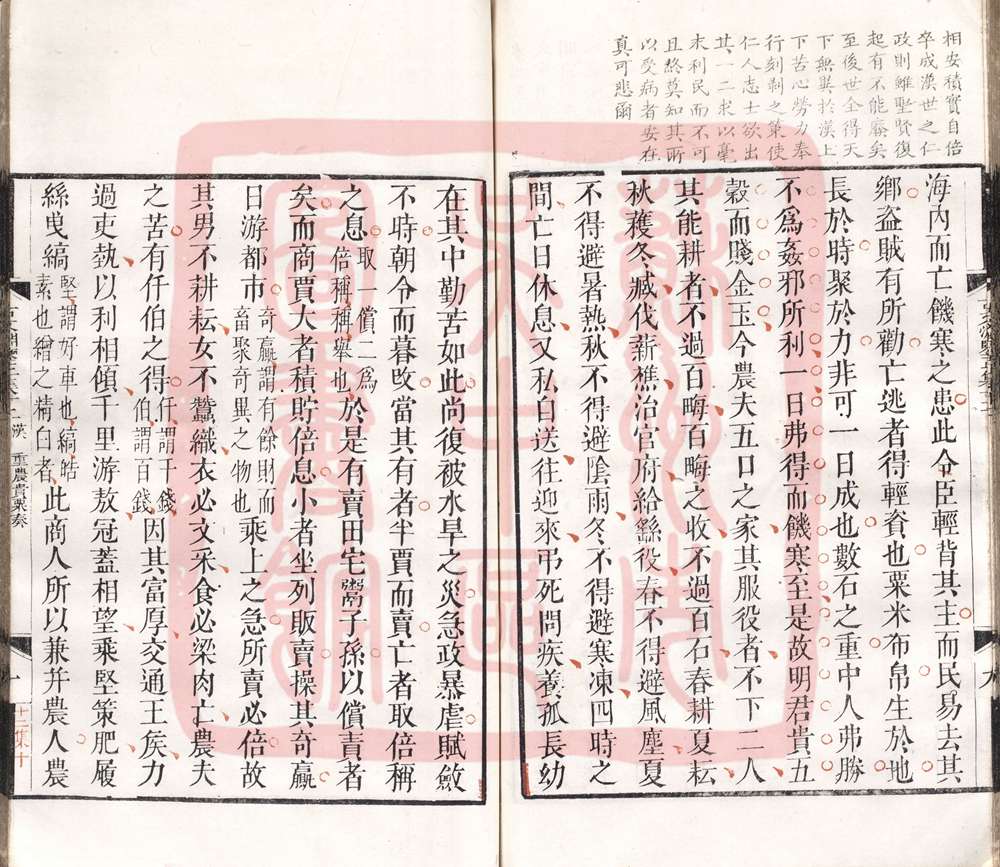 相安積實自倍
卒成漢世之仁
政則雖聖賢復
起有不能廢矣
至後世全得天
下無異於漢上
下苦心勞力奉
行刻剥之策使
仁人志士欲出
其一二求以毫
末利民而不可
且終莫知其所
以受病者安在
真可悲爾
海内而亡饑寒之患此令臣輕背其主而民易去其
鄉盗賊有所勸亡逃者得輕資也粟米布帛生於地
長於時聚於力非可一日成也數石之重中人弗勝
不爲姦邪所利一日弗得而饑寒至是故明君貴五
穀而賤金玉今農夫五口之家其服役者不下二人
其能耕者不過百畮百畮之收不過百石春耕夏耘
秋穫冬臧伐薪樵治官府給繇役春不得避風塵夏
不得避暑熱秋不得避陰雨冬不得避寒凍四時之
間亡日休息又私自送往迎來弔死問疾養孤長幼
在其中勤苦如此尚復被水旱之災急政暴虐賦斂
不時朝令而暮改當其有者半賈而賣亡者取倍稱
之息取一償二爲倍稱稱舉也於是有賣田宅鬻子孫以償責者
矣而商賈大者積貯倍息小者坐列販賣操其奇贏
日游都市奇贏謂有餘財而畜聚奇異之物也乘上之急所賣必倍故
其男不耕耘女不蠶織衣必文采食必粱肉亡農夫
之苦有仟伯之得仟謂千錢伯謂百錢因其富厚交通王矦力
過吏埶以利相傾千里游敖冠蓋相望乘堅策肥履
絲曳縞堅謂好車也縞皓素也繒之精白者此商人所以兼并農人農
漢 重農貴粟奏